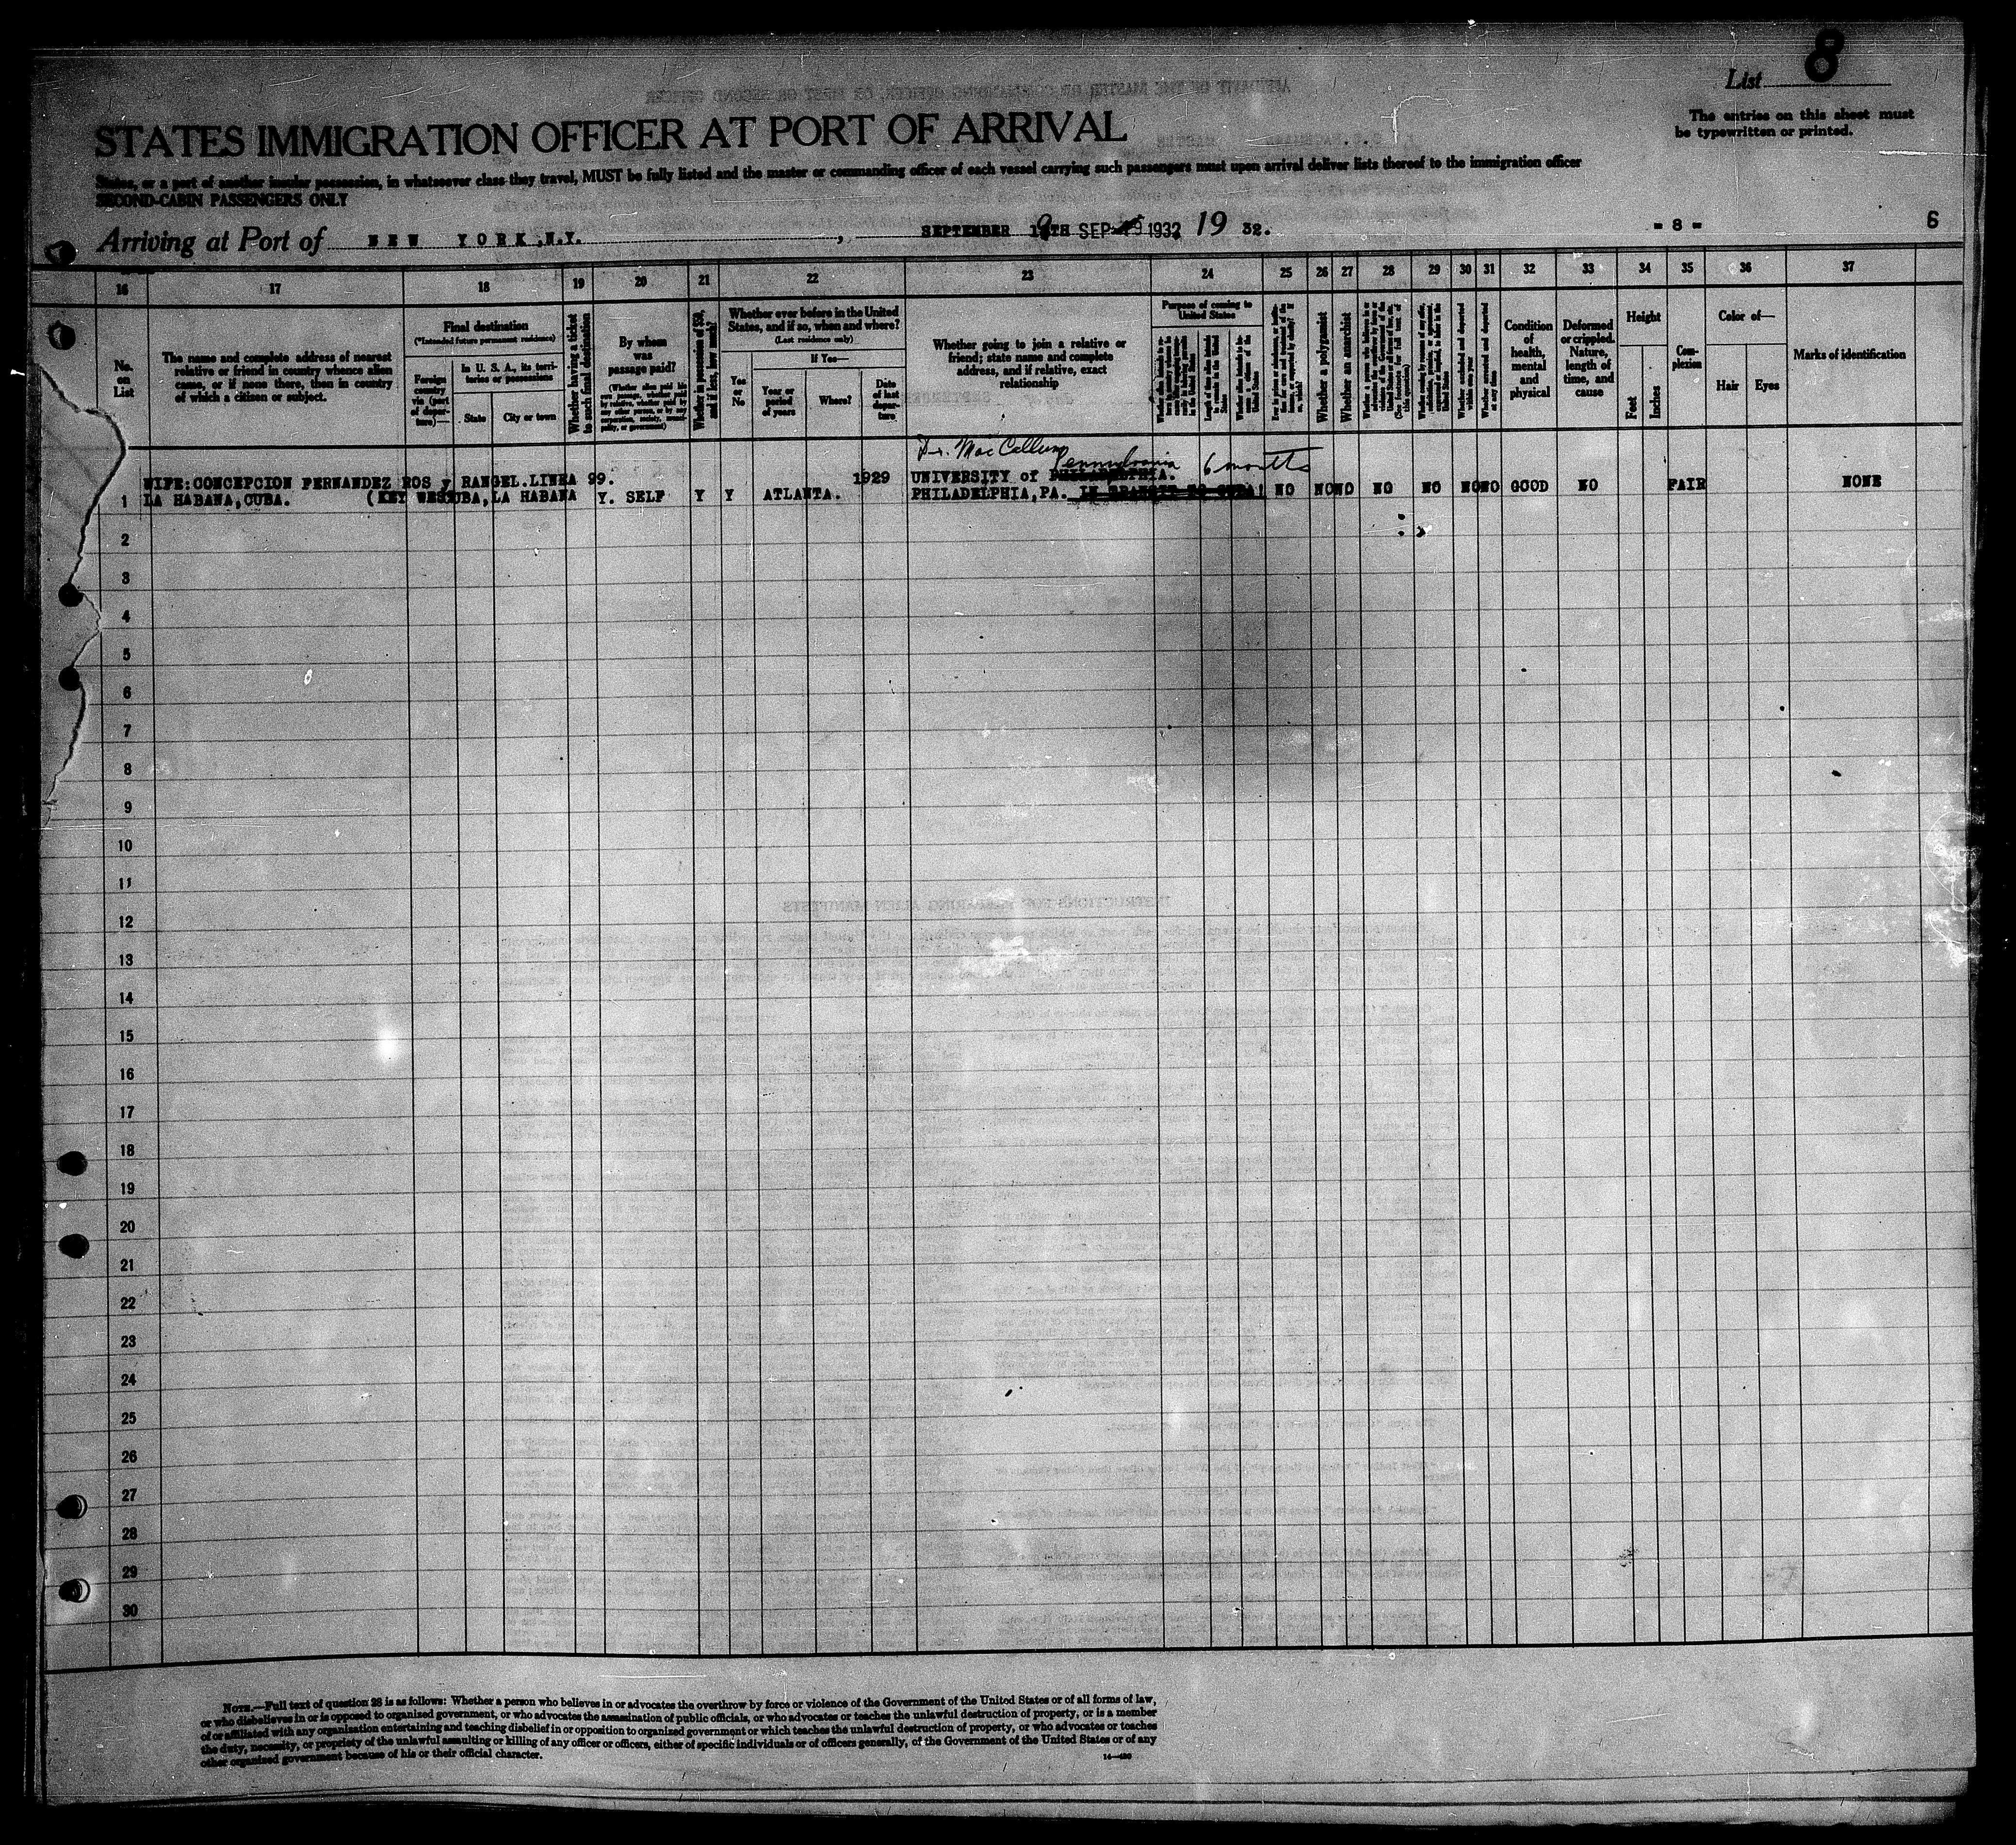 List 8
The entries on this sheet must
be typewritten or printed.
STATES IMMIGRATION OFFICER AT PORT OF ARRIVAL
States, or a port of another insular possession, in whatsoever class they travel, MUST be fully listed and the master or commanding officer of each vessel carrying such passengers must upon arrival deliver lists thereof to the immigration officer
SECOND-CABIN PASSENGERS ONLY
Arriving at Port of NEW YORK, N.Y. , SEPTEMBER 19TH SEP 1932 19 32. - 8 - 6
16 17 18 19 20 21 22 23 24 25 26 27 28 29 30 31 32 33 34 35 36 37
No.
on
List
The name and complete address of nearest
relative or friend in country whence alien
came, or if none there, then in country
of which a citizen or subject.
Final destination
(*Intended future permanent residence)
Foreign
country
via (port
of depar-
ture)—
In U. S. A., its terri-
tories or possessions
State
City or town
Whether having a ticket
to such final destination
By whom
was
passage paid?
Whether in possession of $50,
and if less, how much?
Whether ever before in the United
States, and if so, when and where?
(Last residence only)
Yes
or
No
If Yes—
Year or
period
of years
Where?
Date
of last
depar-
ture
Whether going to join a relative or
friend; state name and complete
address, and if relative, exact
relationship
Purpose of coming to
United States
Whether a polygamist
Whether an anarchist
Condition
of
health,
mental
and
physical
Deformed
or crippled.
Nature,
length of
time, and
cause
Height
Feet
Inches
Com-
plexion
Color of—
Hair
Eyes
Marks of identification
Dr. MacCallum
Pennsylvania 6 months
WIFE:CONCEPCION FERNANDEZ ROS y RANGEL.LINEA 99. 1929 UNIVERSITY of PHILADELPHIA.
1 LA HABANA,CUBA. (KEY WESTUBA,LA HABANA Y. SELF Y Y ATLANTA. PHILADELPHIA,PA. IN TRANSIT TO CUBA! NO NO NO NO NO NO NO GOOD NO FAIR NONE
2
3
4
5
6
7
8
9
10
11
12
13
14
15
16
17
18
19
20
21
22
23
24
25
26
27
28
29
30
NOTE.—Full text of question 28 is as follows: Whether a person who believes in or advocates the overthrow by force or violence of the Government of the United States or of all forms of law,
or who disbelieves in or is opposed to organized government, or who advocates the assassination of public officials, or who advocates or teaches the unlawful destruction of property, or is a member
of or affiliated with any organization entertaining and teaching disbelief in or opposition to organized government or which teaches the unlawful destruction of property, or who advocates or teaches
the duty, necessity, or propriety of the unlawful assaulting or killing of any officer or officers, either of specific individuals or of officers generally, of the Government of the United States or of any
other organized government because of his or their official character.
14—480